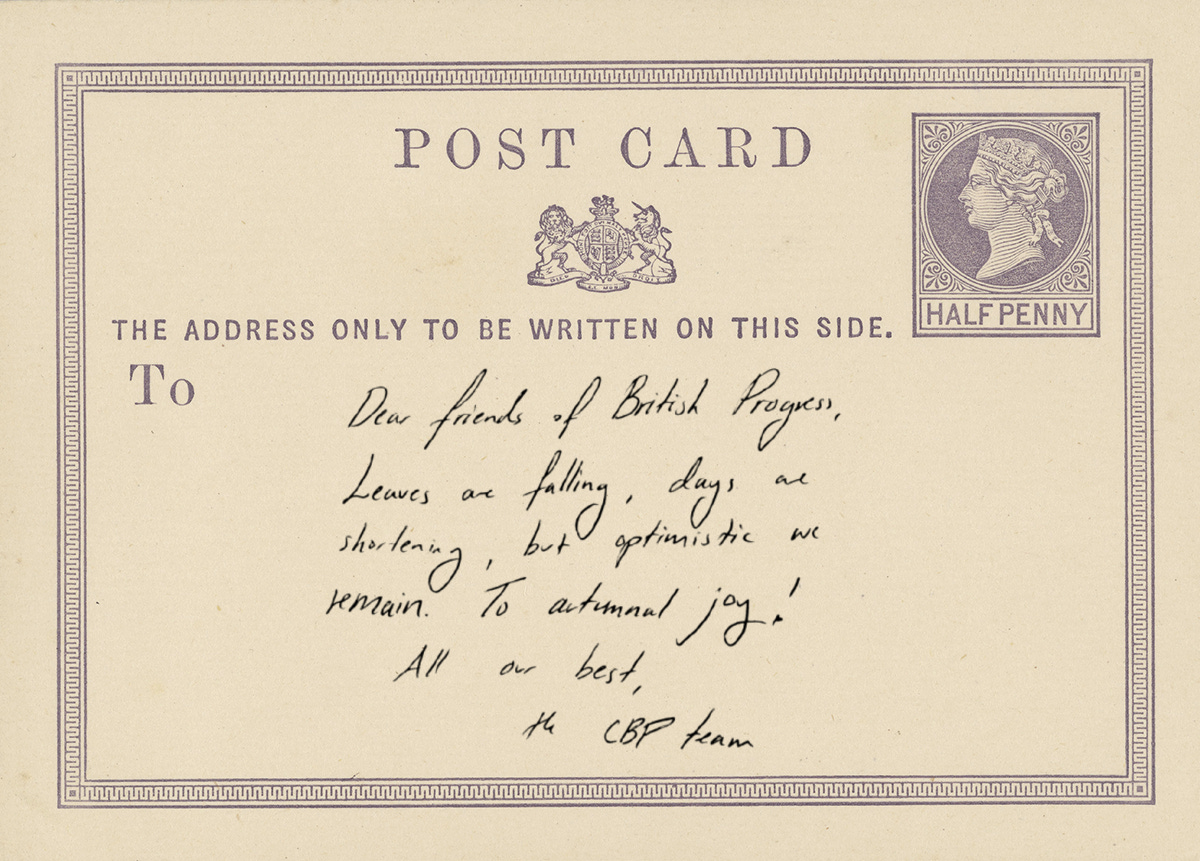 POST CARD
HALFPENNY
THE ADDRESS ONLY TO BE WRITTEN ON THIS SIDE.
To
Dear friends of British Progress,
Leaves are falling, days are
shortening, but optimistic we
remain. To autumnal joy!
All our best,
the CBP team